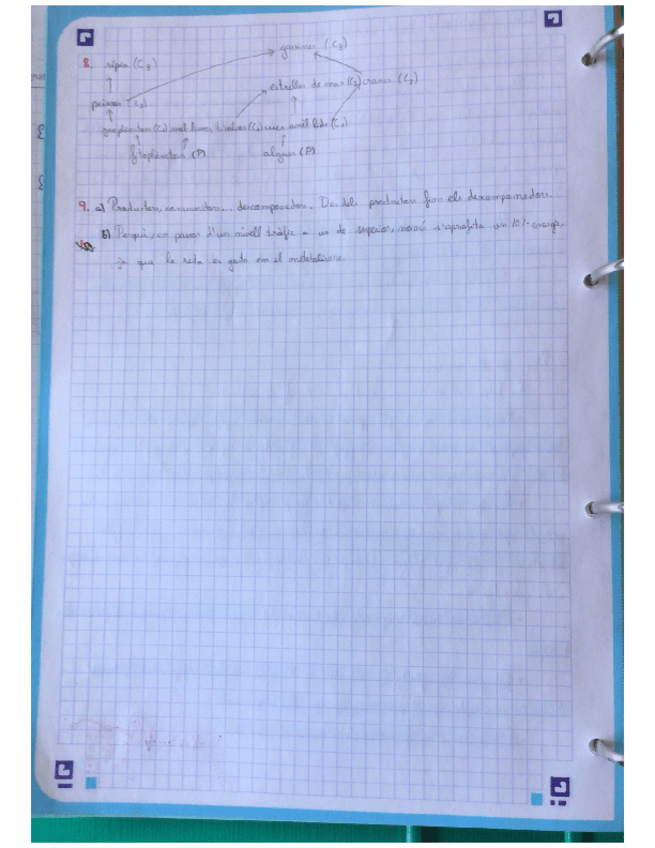 gavines (C3)
8. sípia (C3)
estrelles de mar (C3) crancs (C3)
peixos (C2)
zooplàncton (C1) mol·luscs bivalves (C2) cucs anèl·lids (C2)
fitoplàncton (P) algues (P)
9. a) Productors, consumidors... descomponedors. Des dels productors fins els descomponedors.
b) Perquè, en passar d'un nivell tròfic a un de superior, només s'aprofita un 10% energia,
ja que la resta es gasta en el metabolisme.